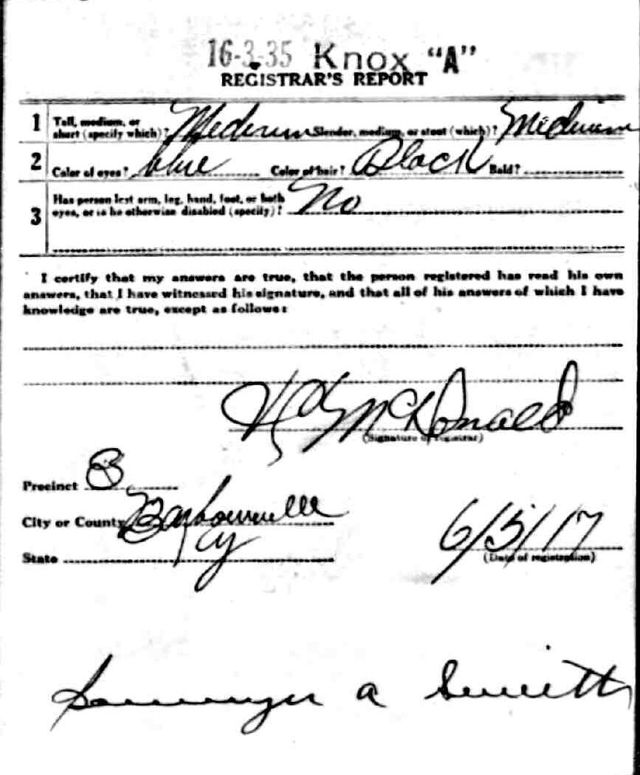 16-3-35 Knox "A"
REGISTRAR'S REPORT
1 Tall, medium, or short (specify which)? Medium Slender, medium, or stout (which)? Medium
2 Color of eyes? blue Color of hair? Black Bald?
3 Has person lost arm, leg, hand, foot, or both eyes, or is he otherwise disabled (specify)? No
I certify that my answers are true, that the person registered has read his own
answers, that I have witnessed his signature, and that all of his answers of which I have
knowledge are true, except as follows:
McDonald
(Signature of registrar)
Precinct 8
City or County Barbourville
State Ky
6/5/17
(Date of registration)
a Smith